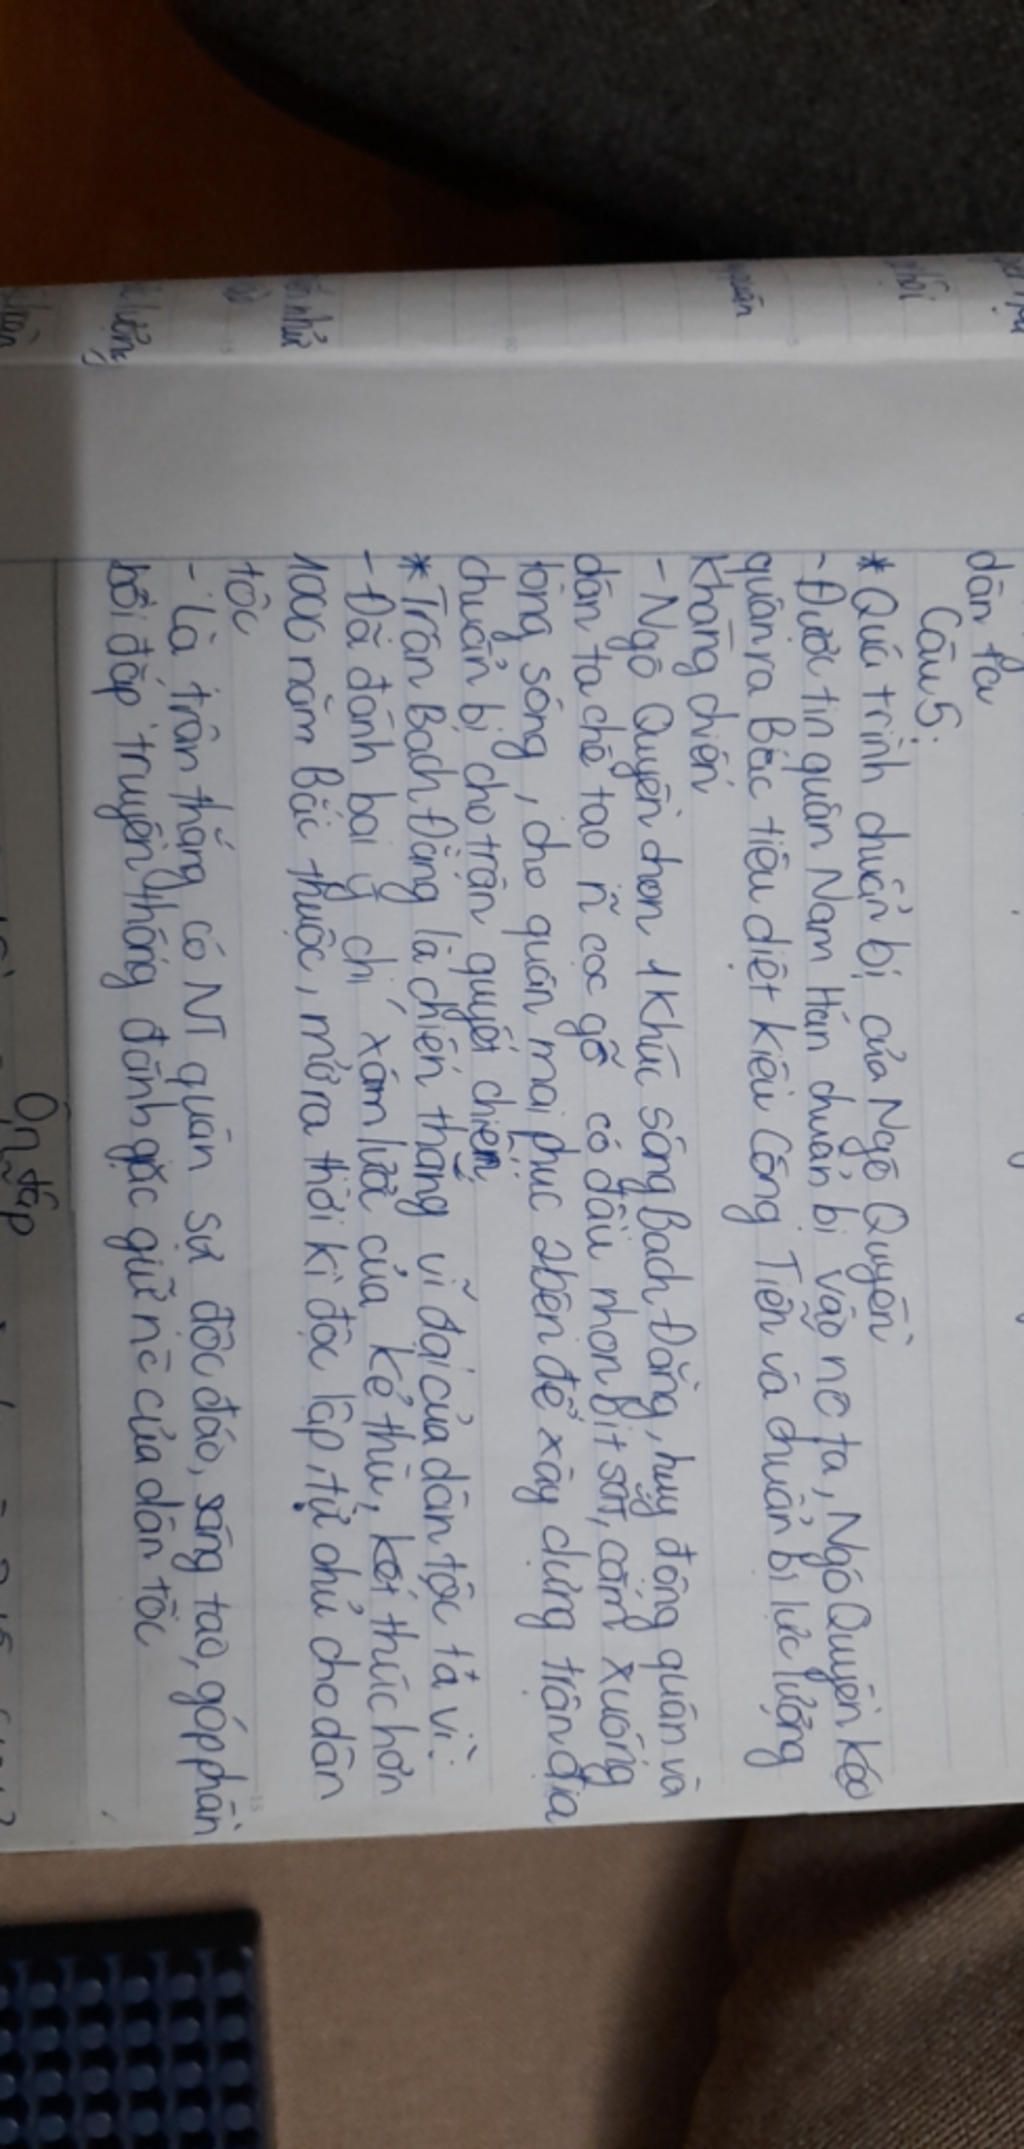 dân ta
Câu 5:
* Quá trình chuẩn bị của Ngô Quyền
- Được tin quân Nam Hán chuẩn bị vào nc ta, Ngô Quyền kéo
quân ra Bắc tiêu diệt kiều Công Tiễn và chuẩn bị lực lượng
kháng chiến
- Ngô Quyền chọn 1 khúc sông Bạch Đằng, huy động quân và
dân ta chế tạo n~ cọc gỗ có đầu nhọn bịt sắt, cắm xuống
lòng sông, cho quân mai phục 2 bên để xây dựng trận địa
chuẩn bị cho trận quyết chiến
* Trận Bạch Đằng là chiến thắng vĩ đại của dân tộc ta vì:
- Đã đánh bại ý chí xâm lược của kẻ thù, kết thúc hơn
1000 năm Bắc thuộc, mở ra thời kì độc lập, tự chủ cho dân
tộc
- Là trận thắng có NT quân sự độc đáo, sáng tạo, góp phần
bồi đắp truyền thống đánh giặc giữ nc của dân tộc
Ôn tập
lưỡng
quân